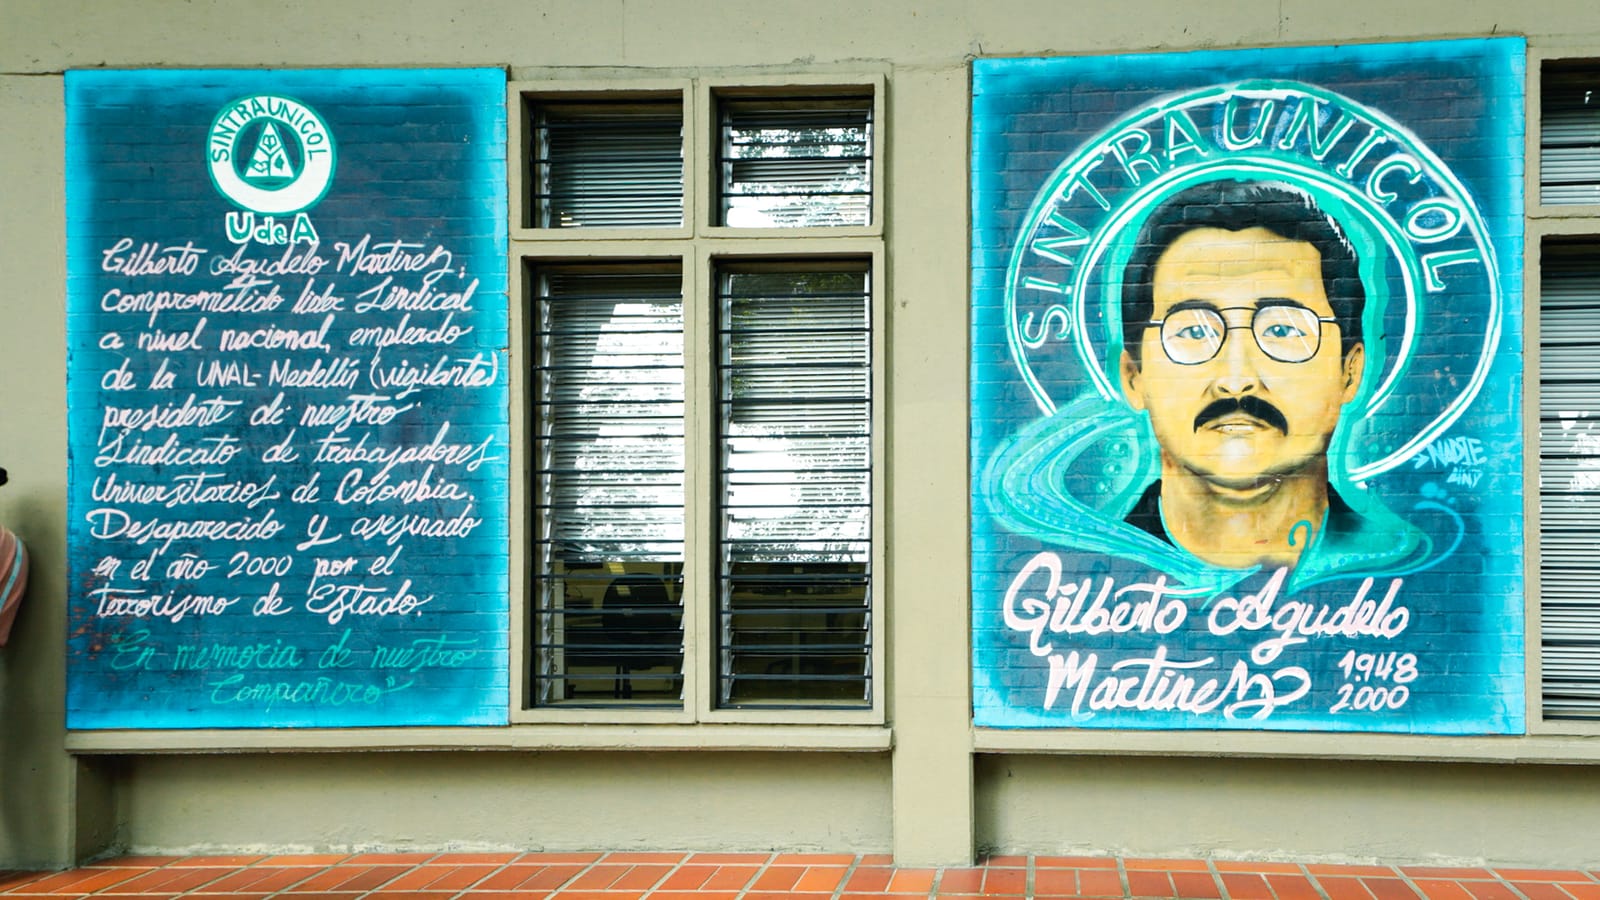 SINTRAUNICOL
UdeA
Gilberto Agudelo Martinez,
comprometido lider Sindical
a nivel nacional, empleado
de la UNAL-Medellín (vigilante)
presidente de nuestro
Sindicato de trabajadores
Universitarios de Colombia.
Desaparecido y asesinado
en el año 2000 por el
terrorismo de Estado.
"En memoria de nuestro
Compañero"
SINTRAUNICOL
NADIE
Gilberto Agudelo
Martinez
1.948
2.000